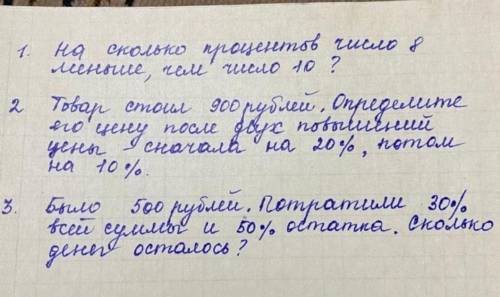 1. На сколько процентов число 8
меньше, чем число 10?
2 Товар стоил 900 рублей. Определите
его цену после двух повышений
цены сначала на 20%, потом
на 10%.
3. Было 500 рублей. Потратили 30%
всей суммы и 50% остатка. Сколько
денег осталось?